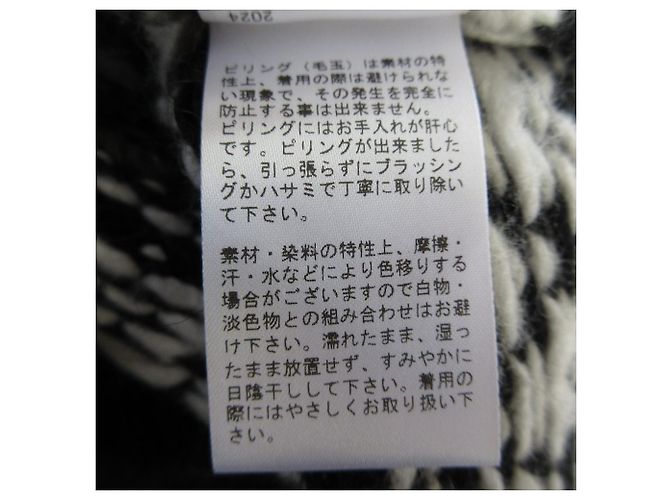 2024
ピリング（毛玉）は素材の特
性上、着用の際は避けられな
い現象で、その発生を完全に
防止する事は出来ません。
ピリングにはお手入れが肝心
です。ピリングが出来ました
ら、引っ張らずにブラッシン
グかハサミで丁寧に取り除い
て下さい。
素材・染料の特性上、摩擦・
汗・水などにより色移りする
場合がございますので白物・
淡色物との組み合わせはお避
け下さい。濡れたまま、湿っ
たまま放置せず、すみやかに
日陰干しして下さい。着用の
際にはやさしくお取り扱い下
さい。